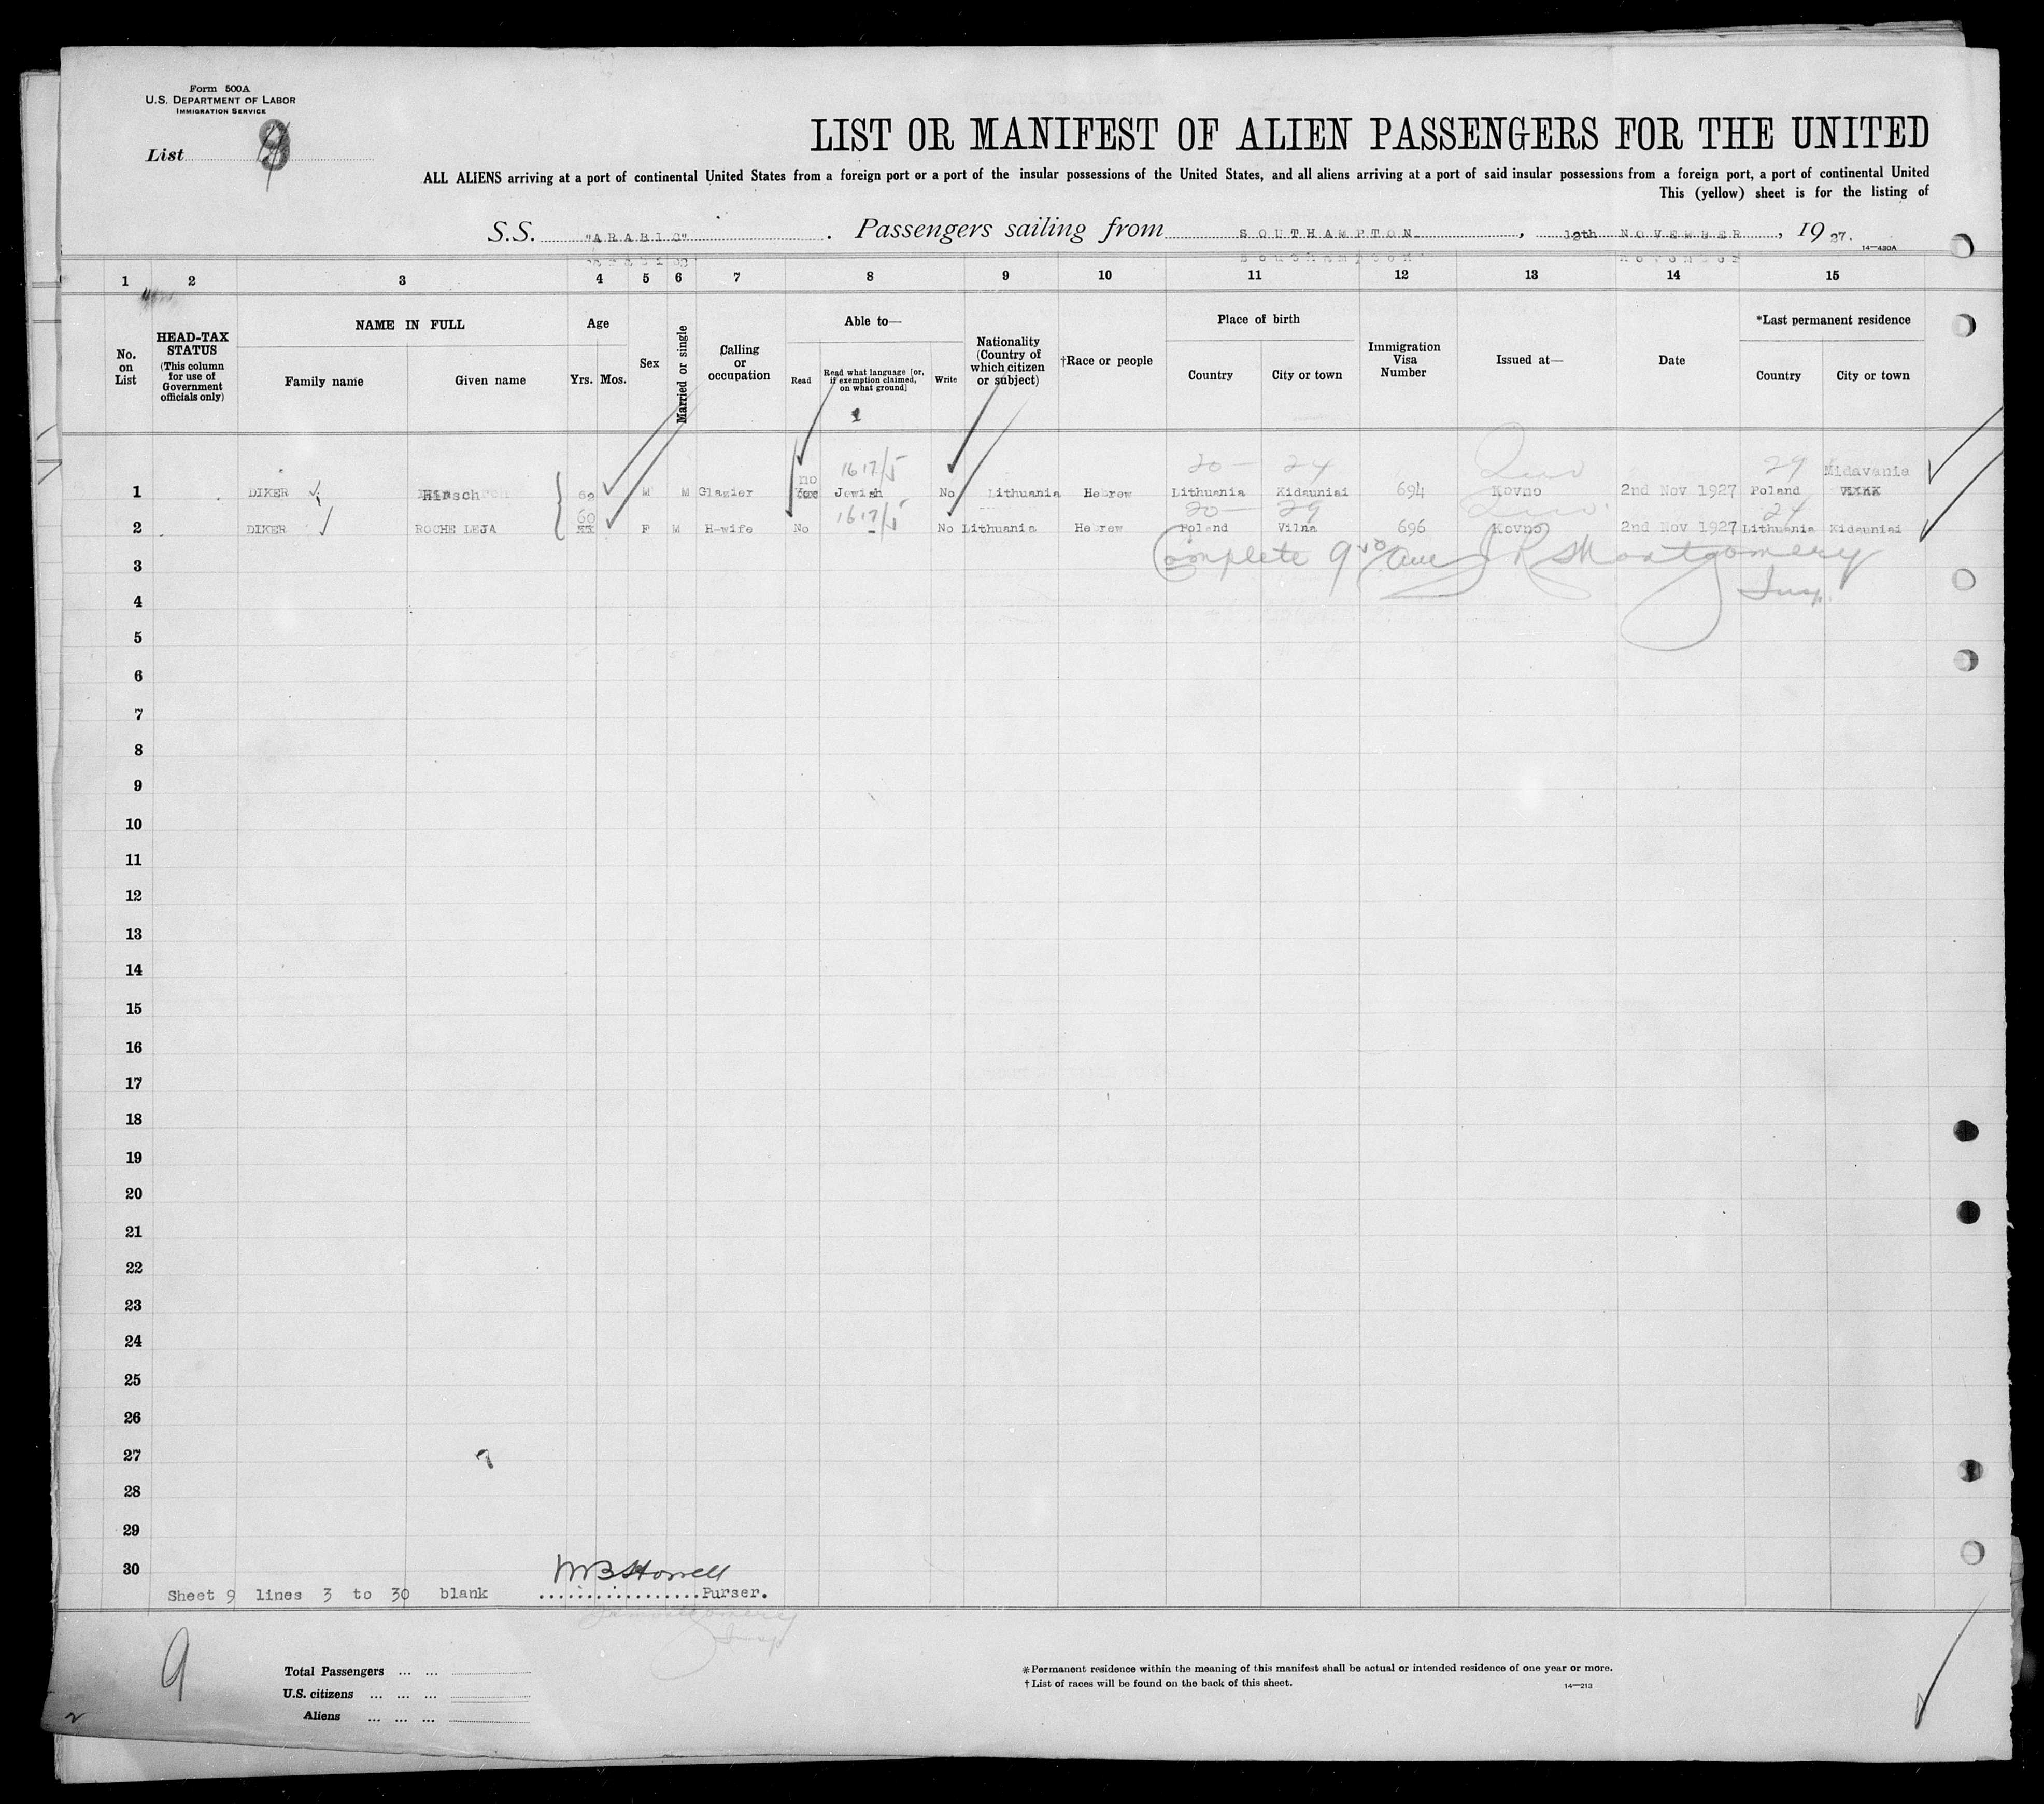 Form 500A
U.S. DEPARTMENT OF LABOR
IMMIGRATION SERVICE
List
LIST OR MANIFEST OF ALIEN PASSENGERS FOR THE UNITED
ALL ALIENS arriving at a port of continental United States from a foreign port or a port of the insular possessions of the United States, and all aliens arriving at a port of said insular possessions from a foreign port, a port of continental United
This (yellow) sheet is for the listing of
S.S. "ARABIC". Passengers sailing from SOUTHAMPTON, 12th NOVEMBER, 1927.
14-430A
1 2 3 4 5 6 7 8 9 10 11 12 13 14 15
No. on List
HEAD-TAX STATUS (This column for use of Government officials only)
NAME IN FULL
Family name
Given name
Age
Yrs. Mos.
Sex
Married or single
Calling or occupation
Able to—
Read
Read what language [or, if exemption claimed, on what ground]
Write
Nationality (Country of which citizen or subject)
†Race or people
Place of birth
Country
City or town
Immigration Visa Number
Issued at—
Date
*Last permanent residence
Country
City or town
no 1617/5 20 — 24 29 Midavania
1 DIKER Hirsch M M Glazier Jewish No Lithuania Hebrew Lithuania Kidauniai 694 Kovno 2nd Nov 1927 Poland
60 1617/5 20 — 29 24
2 DIKER ROCHE LEJA F M H-wife No - No Lithuania Hebrew Poland Vilna 696 Kovno 2nd Nov 1927 Lithuania Kidauniai
3 Complete J R Montgomery
Insp.
4
5
6
7
8
9
10
11
12
13
14
15
16
17
18
19
20
21
22
23
24
25
26
27
28
29
30
Sheet 9 lines 3 to 30 blank ................Purser.
9
Total Passengers ... ...
U.S. citizens ... ... ...
Aliens ... ... ...
*Permanent residence within the meaning of this manifest shall be actual or intended residence of one year or more.
† List of races will be found on the back of this sheet.
14-213